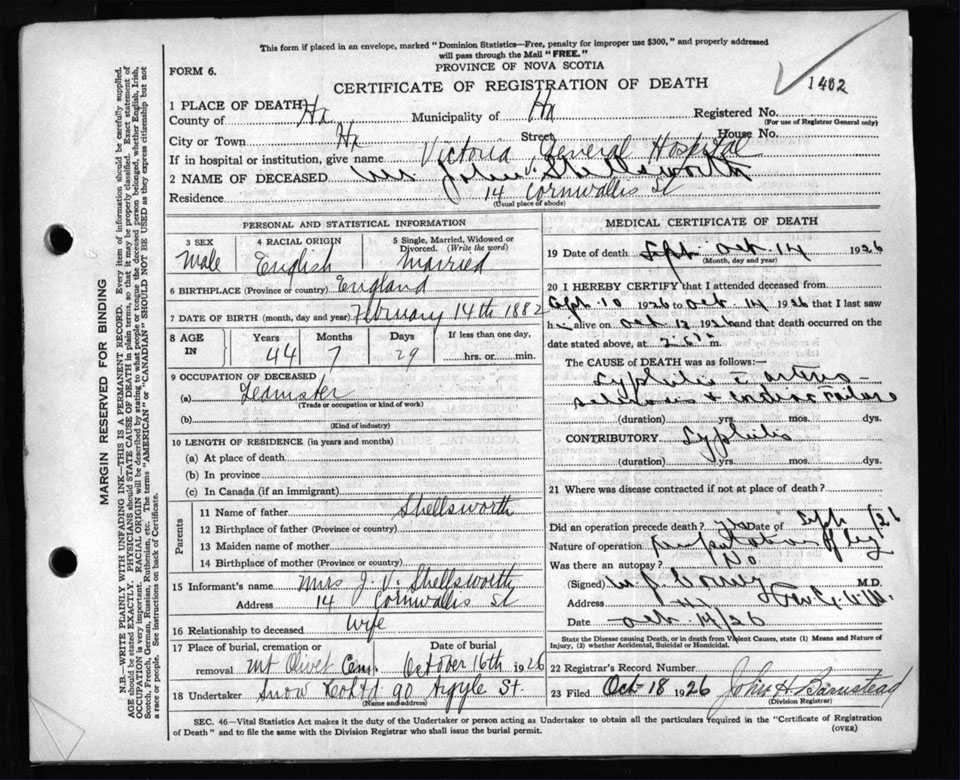 This form if placed in an envelope, marked "Dominion Statistics—Free, penalty for improper use $300," and properly addressed
will pass through the Mail "FREE."
PROVINCE OF NOVA SCOTIA
FORM 6.
CERTIFICATE OF REGISTRATION OF DEATH
1402
1 PLACE OF DEATH
County of Hx Municipality of Hx Registered No.
(For use of Registrar General only)
City or Town Hx Street House No.
If in hospital or institution, give name Victoria General Hospital
2 NAME OF DECEASED Mr John V. Shellsworth
Residence 14 Cornwallis St
(Usual place of abode)
PERSONAL AND STATISTICAL INFORMATION
3 SEX 4 RACIAL ORIGIN 5 Single, Married, Widowed or
Divorced. (Write the word)
Male English Married
6 BIRTHPLACE (Province or country) England
7 DATE OF BIRTH (month, day and year) February 14th 1882
8 AGE IN Years Months Days If less than one day,
44 7 29 hrs. or min.
9 OCCUPATION OF DECEASED
(a) Teamister
(Trade or occupation or kind of work)
(b)
(Kind of industry)
10 LENGTH OF RESIDENCE (in years and months)
(a) At place of death
(b) In province
(c) In Canada (if an immigrant)
Parents
11 Name of father Shellsworth
12 Birthplace of father (Province or country)
13 Maiden name of mother
14 Birthplace of mother (Province or country)
15 Informant's name Mrs J. V. Shellsworth
Address 14 Cornwallis St
16 Relationship to deceased wife
17 Place of burial, cremation or Date of burial
removal Mt Olivet Cem. October 16th 1926
18 Undertaker Snow & Co Ltd 90 Argyle St.
(Name and address)
MEDICAL CERTIFICATE OF DEATH
19 Date of death Sept Oct. 14 1926
(Month, day and year)
20 I HEREBY CERTIFY that I attended deceased from
10 1926 to Oct. 14 1926 that I last saw
h alive on Oct 13 1926 and that death occurred on
date stated above, at m.
The CAUSE of DEATH was as follows:—
Syphilis arterio-
sclerosis & cardiac failure
(duration) yrs. mos. dys.
CONTRIBUTORY Syphilis
(duration) yrs. mos. dys.
21 Where was disease contracted if not at place of death?
Did an operation precede death? yes Date of Sept /26
Nature of operation Amputation of leg
Was there an autopsy? No
(Signed) M.D.
Address
Date Oct 14/26
State the Disease causing Death, or in death from Violent Causes, state (1) Means and Nature of
Injury, (2) whether Accidental, Suicidal or Homicidal.
22 Registrar's Record Number
23 Filed Oct 18 1926 John H. Barnstead
(Division Registrar)
SEC. 46—Vital Statistics Act makes it the duty of the Undertaker or person acting as Undertaker to obtain all the particulars required in the "Certificate of Registration
of Death" and to file the same with the Division Registrar who shall issue the burial permit.
(OVER)
MARGIN RESERVED FOR BINDING
N.B.—WRITE PLAINLY WITH UNFADING INK—THIS IS A PERMANENT RECORD. Every item of information should be carefully supplied.
AGE should be stated EXACTLY. PHYSICIANS should STATE CAUSE OF DEATH in plain terms, so that it may be properly classified. Exact statement of
OCCUPATION is very important. RACIAL ORIGIN will be described by stating to what people or tongue the deceased person belonged, whether English, Irish,
Scotch, French, German, Russian, Ruthenian, etc. The terms "AMERICAN" or "CANADIAN" SHOULD NOT BE USED as they express citizenship but not
a race or people. See instructions on back of Certificate.